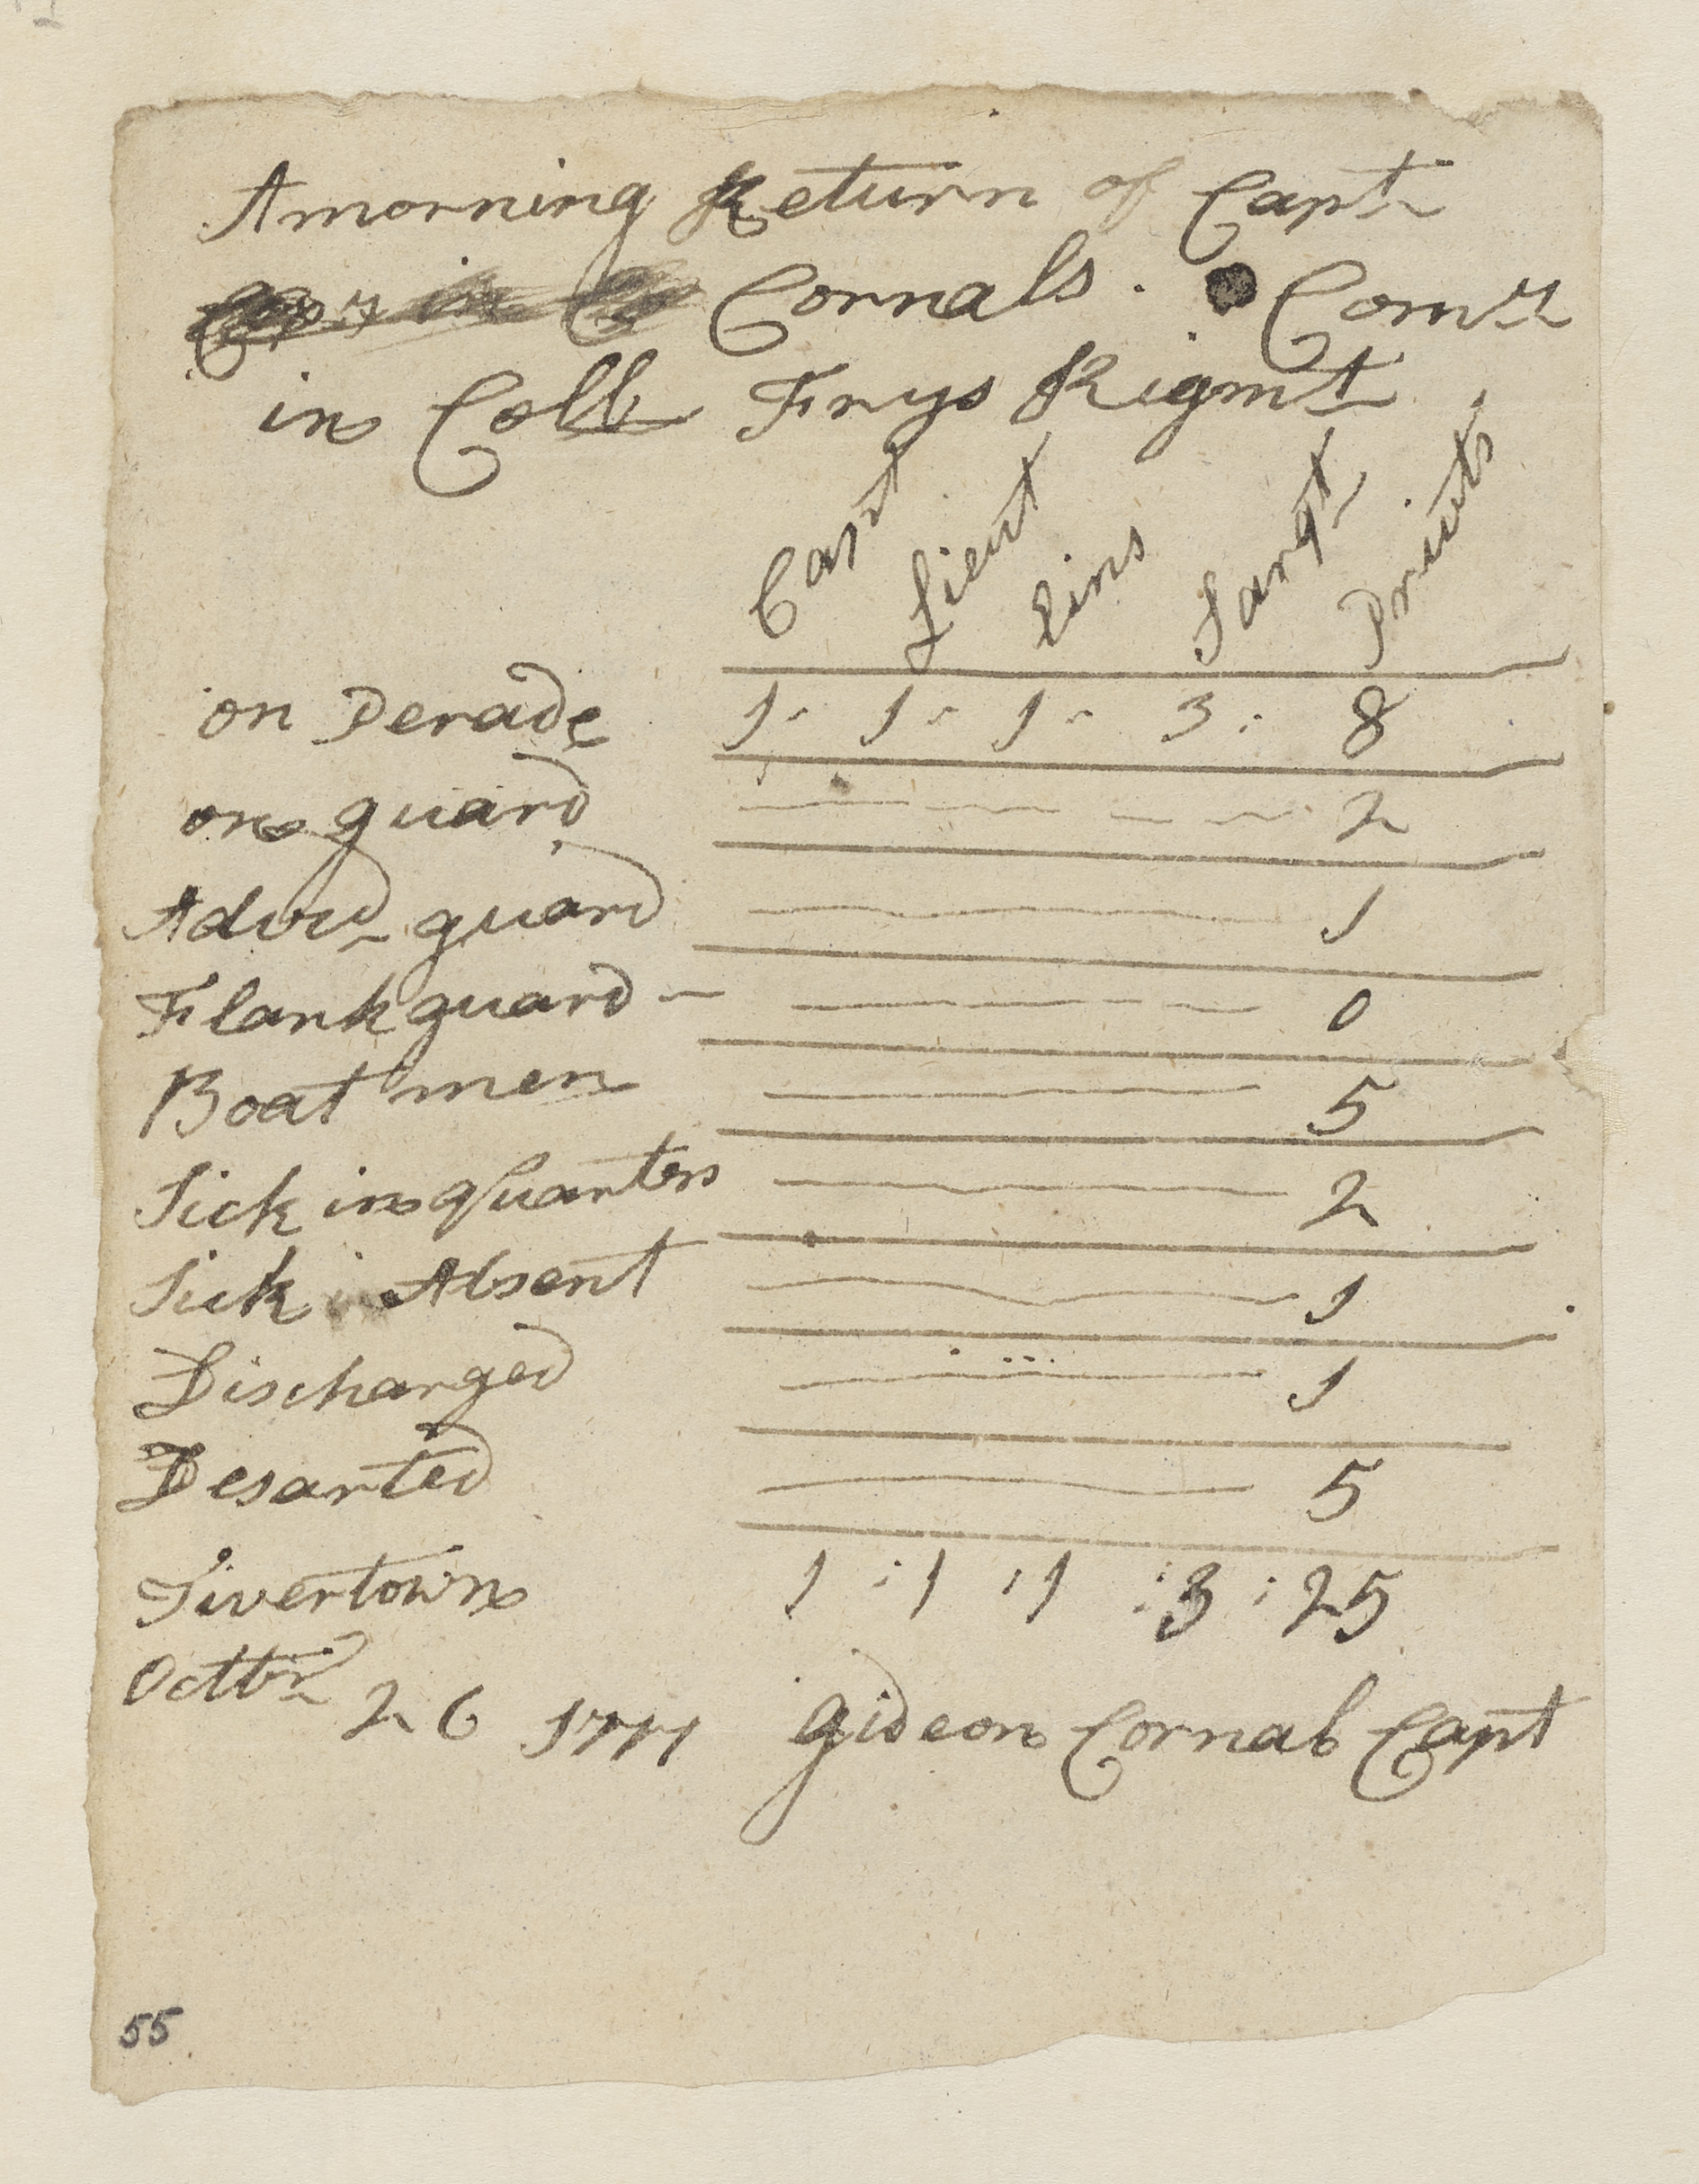 A morning Return of Capt
Cornals. Comy
in Coll Frys Rigmt
Capt Lieut Eins Sargt Privts
on Perade 1 - 1 - 1 - 3 : 8
on guard 2
Advd guard 1
Flank guard - 0
Boat men 5
Sick in quarters 2
Sick Absent 1
Discharged 1
Desarted 5
Tivertown 1 : 1 : 1 : 3 : 25
Octbr 26 1777 Gideon Cornal Capt
55